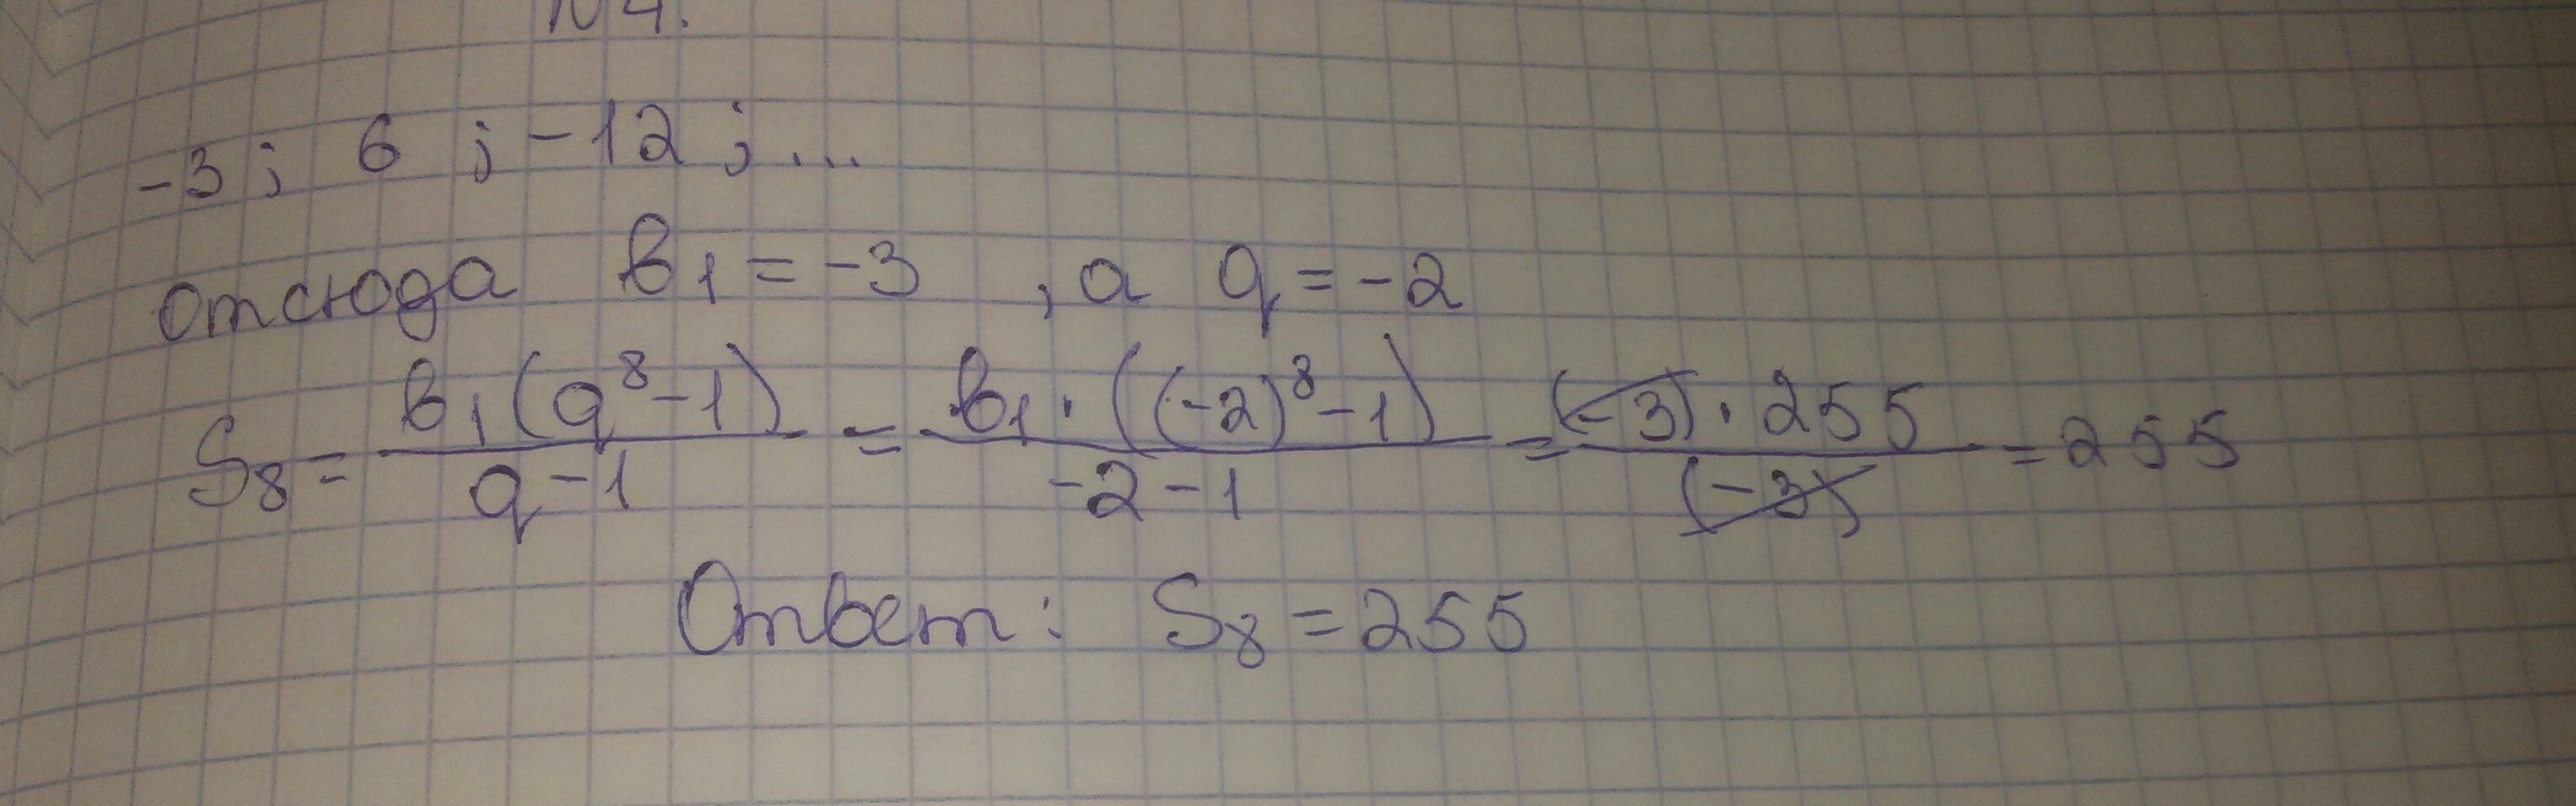 №4.
-3; 6; -12; ...
отсюда в₁ = -3, а q = -2
S₈ = в₁(q⁸-1)/(q-1) = в₁·((-2)⁸-1)/(-2-1) = (-3)·255/(-3) = 255
Ответ: S₈ = 255